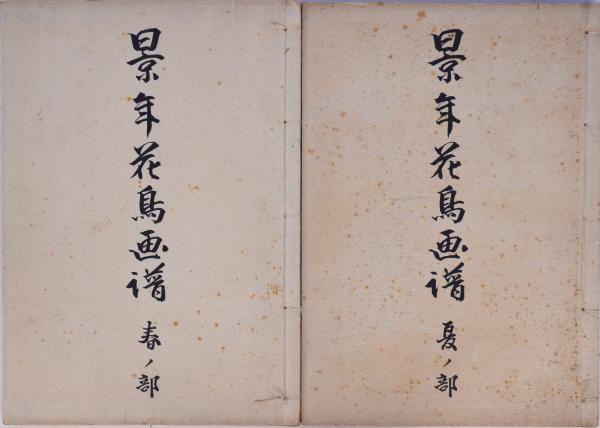 景年花鳥画譜 春ノ部
景年花鳥画譜 夏ノ部